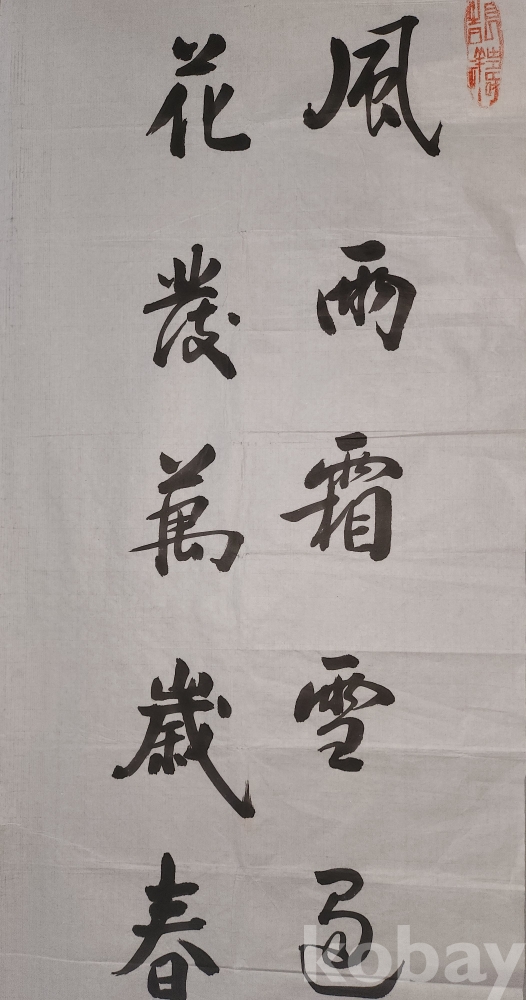 風雨霜雪過
花發萬歲春
kobay